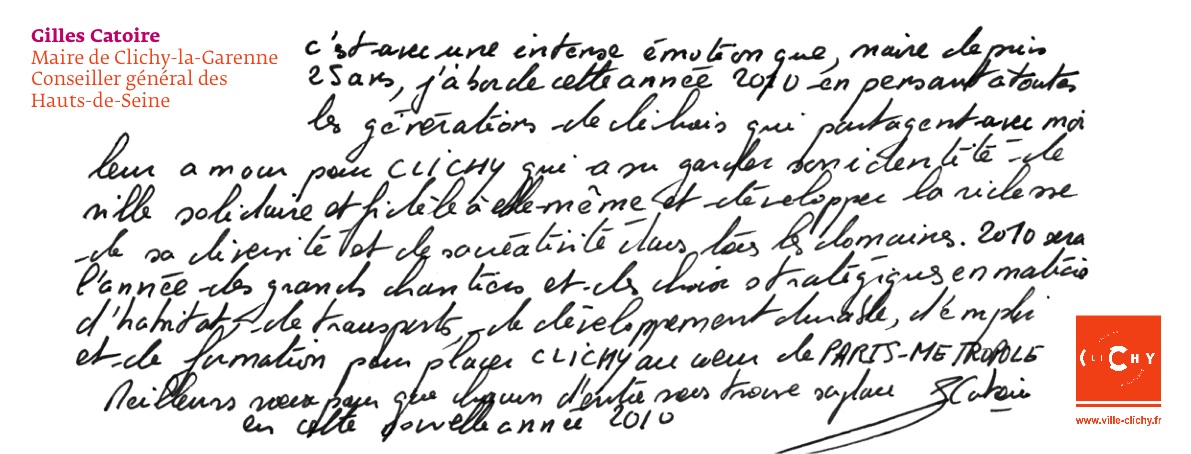 Gilles Catoire
Maire de Clichy-la-Garenne
Conseiller général des
Hauts-de-Seine
c'est avec une intense émotion que, maire depuis
25 ans, j'aborde cette année 2010 en pensant à toutes
les générations de clichois qui partagent avec moi
leur amour pour CLICHY qui a su garder son identité de
ville solidaire et fidèle à elle-même et développer la richesse
de sa diversité et de sa créativité dans tous les domaines. 2010 sera
l'année des grands chantiers et des choix stratégiques en matière
d'habitat, de transports, de développement durable, d'emploi
et de formation pour placer CLICHY au cœur de PARIS-METROPOLE
Meilleurs vœux pour que chacun d'entre vous trouve sa place
en cette nouvelle année 2010
GCatoire
CLICHY
www.ville-clichy.fr